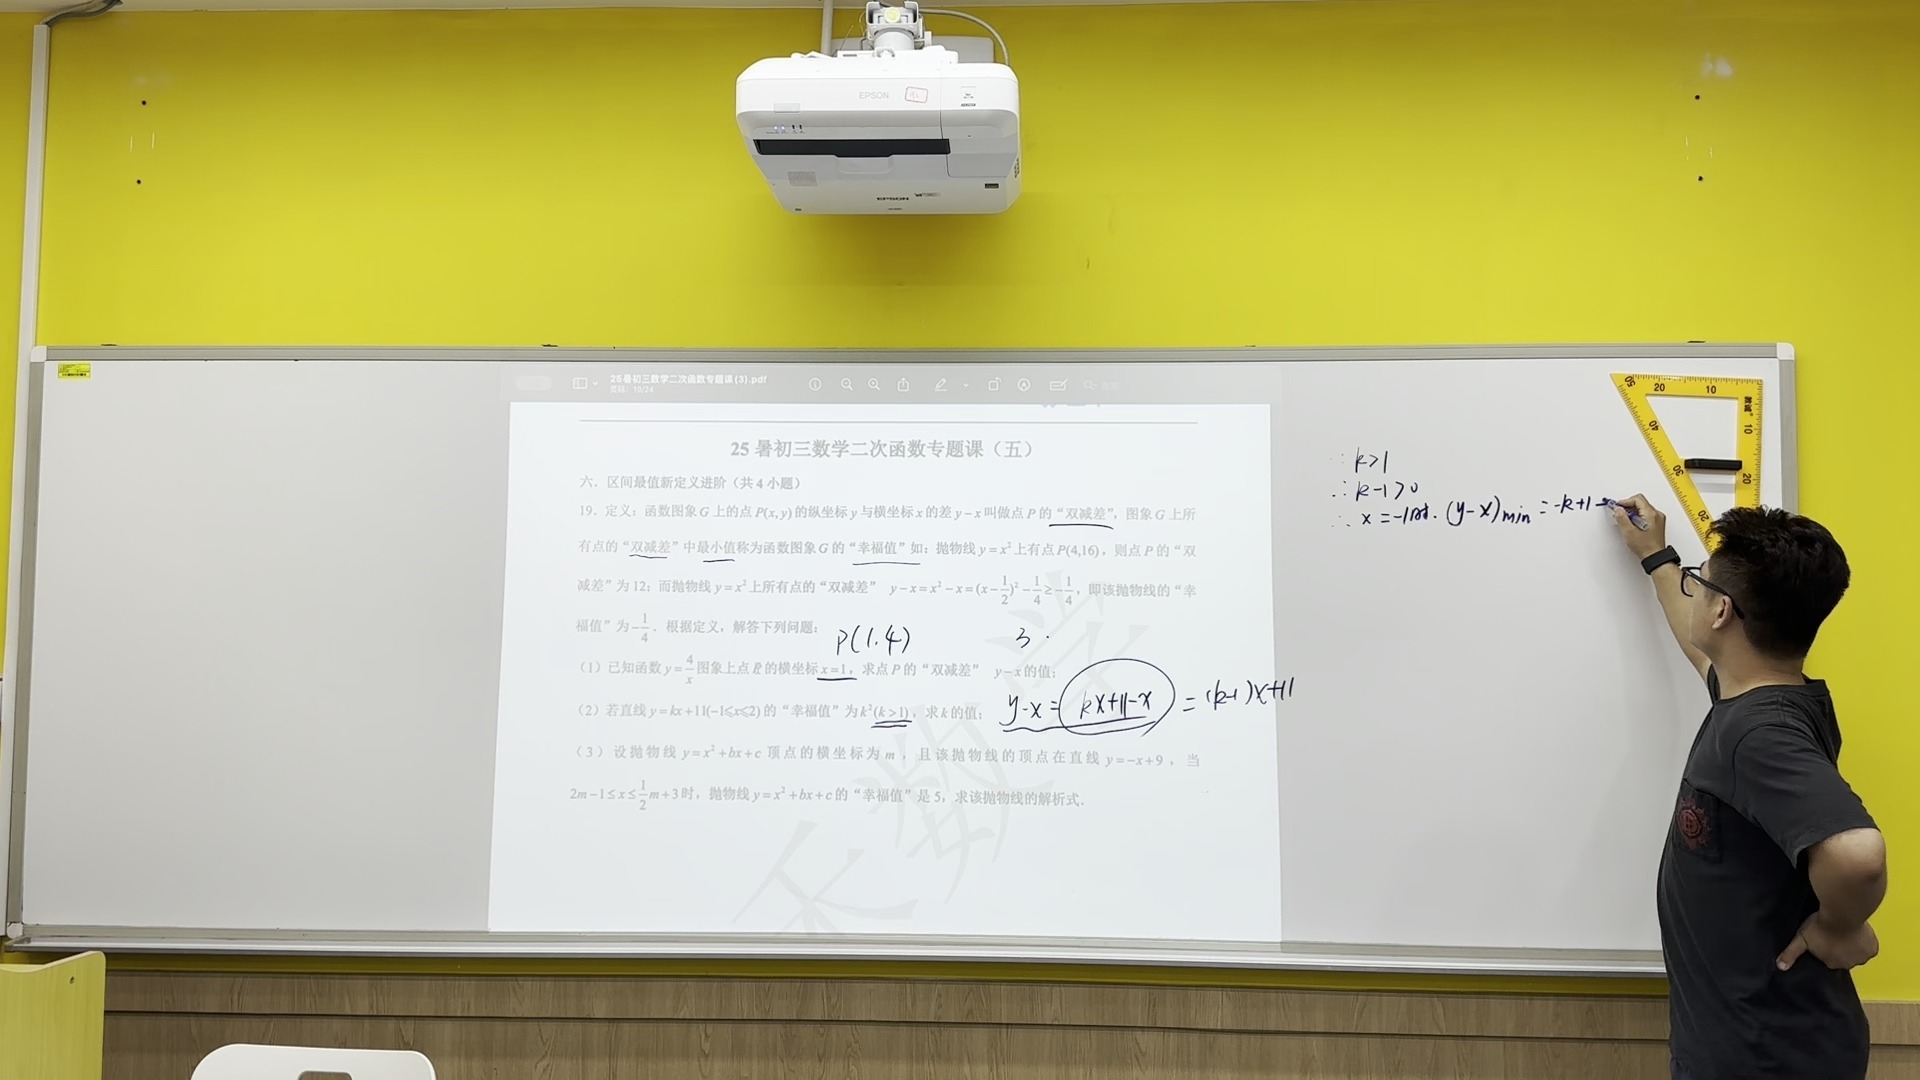 EPSON
EPSON
25暑初三数学二次函数专题课(3).pdf
页码：10/24
25 暑初三数学二次函数专题课（五）
六．区间最值新定义进阶（共 4 小题）
19．定义：函数图象 G 上的点 P(x, y) 的纵坐标 y 与横坐标 x 的差 y−x 叫做点 P 的“双减差”，图象 G 上所
有点的“双减差”中最小值称为函数图象 G 的“幸福值”如：抛物线 y=x² 上有点 P(4,16)，则点 P 的“双
减差”为 12；而抛物线 y=x² 上所有点的“双减差” y−x=x²−x=(x−1/2)²−1/4≥−1/4，即该抛物线的“幸
福值”为−1/4．根据定义，解答下列问题：
P(1.4) 3.
（1）已知函数 y=4/x 图象上点 P 的横坐标 x=1，求点 P 的“双减差” y−x 的值；
（2）若直线 y=kx+11(−1≤x≤2) 的“幸福值”为 k²(k>1)，求 k 的值；
y-x = kx+11-x = (k-1)x+11
（3）设抛物线 y=x²+bx+c 顶点的横坐标为 m，且该抛物线的顶点在直线 y=−x+9，当
2m−1≤x≤1/2m+3 时，抛物线 y=x²+bx+c 的“幸福值”是 5，求该抛物线的解析式．
禾数学
∵ k>1
∴ k-1>0
∴ x=-1时. (y-x)min = -k+1
50 20 10
40 10
30 20
20